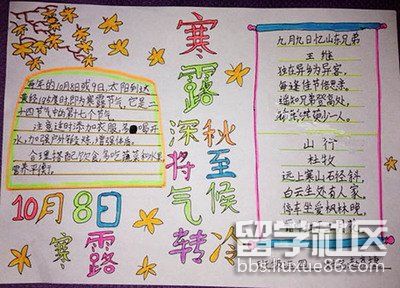 每年的10月8日或9日,太阳到达
黄经195度时为寒露节气,它是二
十四节气中的第十七个节气。
注意适时添加衣服,多喝开
水,加强户外锻炼,增强体质。
合理搭配饮食,多吃蔬菜和水果,
营养平衡。
10月8日
寒露
寒露
深秋将至
气候转冷
九月九日忆山东兄弟
王维
独在异乡为异客,
每逢佳节倍思亲。
遥知兄弟登高处,
少一人。
山行
杜牧
远上寒山石径斜,
白云生处有人家。
停车坐爱枫林晚,
留学社区
bbs.liuxue86.com